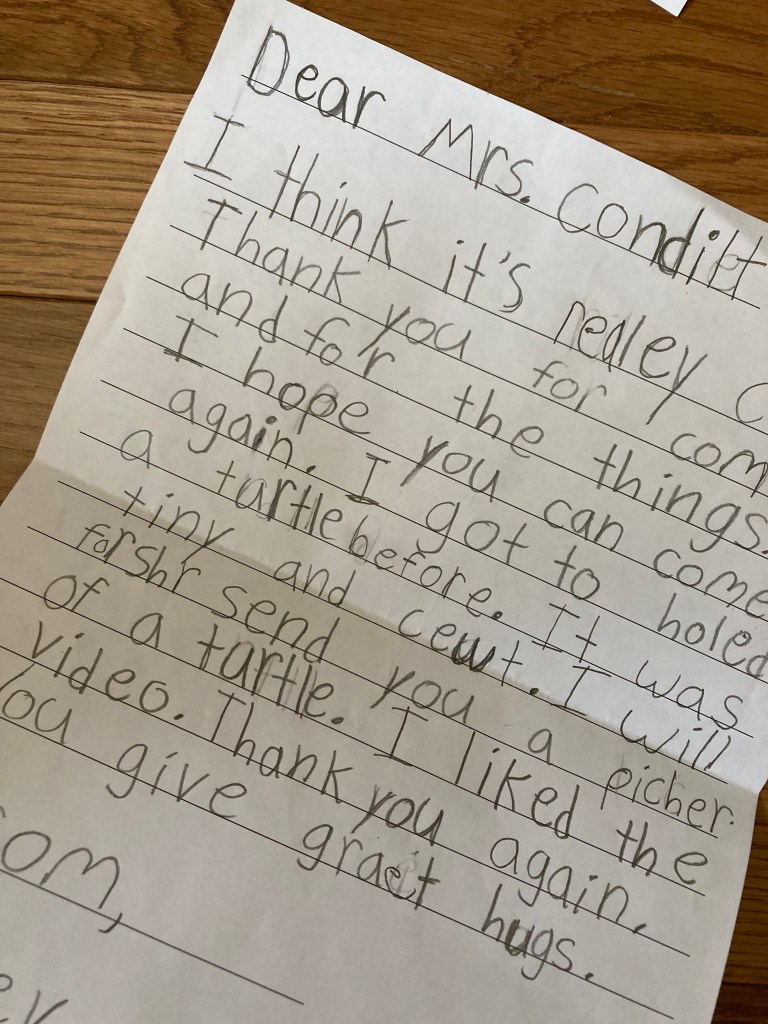 Dear Mrs. Conditt
I think it's realey c
Thank you for com
and for the things.
I hope you can come
again. I got to holed
a tartle before. It was
tiny and cewt. I will
farshr send you a picher
of a tartle. I liked the
video. Thank you again.
You give graet hugs.
om,
ey